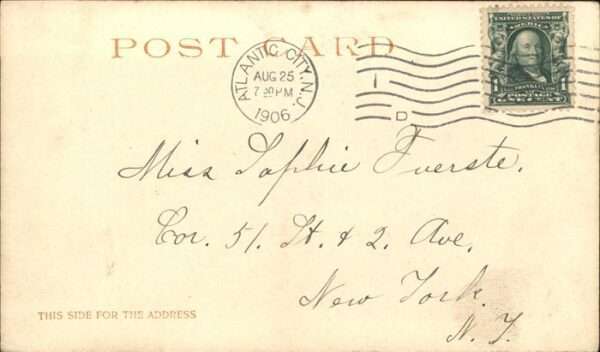 POST CARD
ATLANTIC CITY, N.J.
AUG 25
7 30 PM
1906
1
D
UNITED STATES OF AMERICA
1 1
FRANKLIN
POSTAGE
Miss Sophie Fuerste.
Cor. 51. St. & 2. Ave.
New York.
N. Y.
THIS SIDE FOR THE ADDRESS